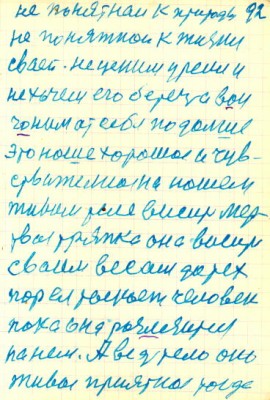 не понятнои к природы 92
не понятнои к жизни
своей. не ценим времи и
не хочем его беречь а вон
гоним от себя подольше
это ноше хорошое и чув-
ствителное на ношем
живом теле висит мер-
твая тряпка она висит
своим весом до тех
пор ея таскает человек
пока она
на нем. А ведь тело оно
живое приятное когда